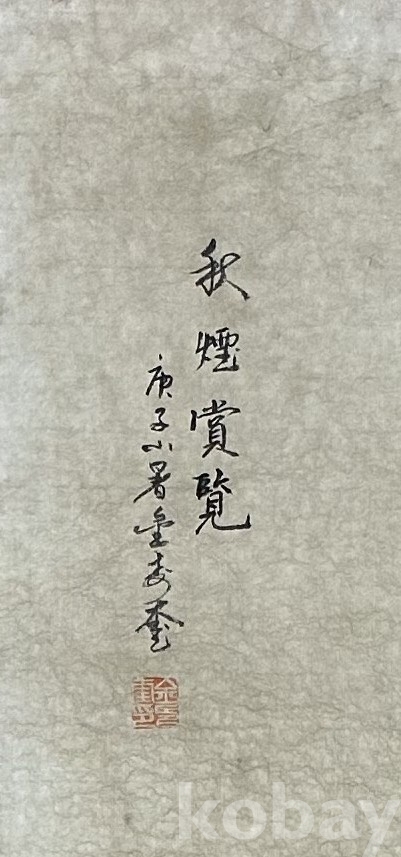 秋煙賞覽
庚子小暑金
kobay